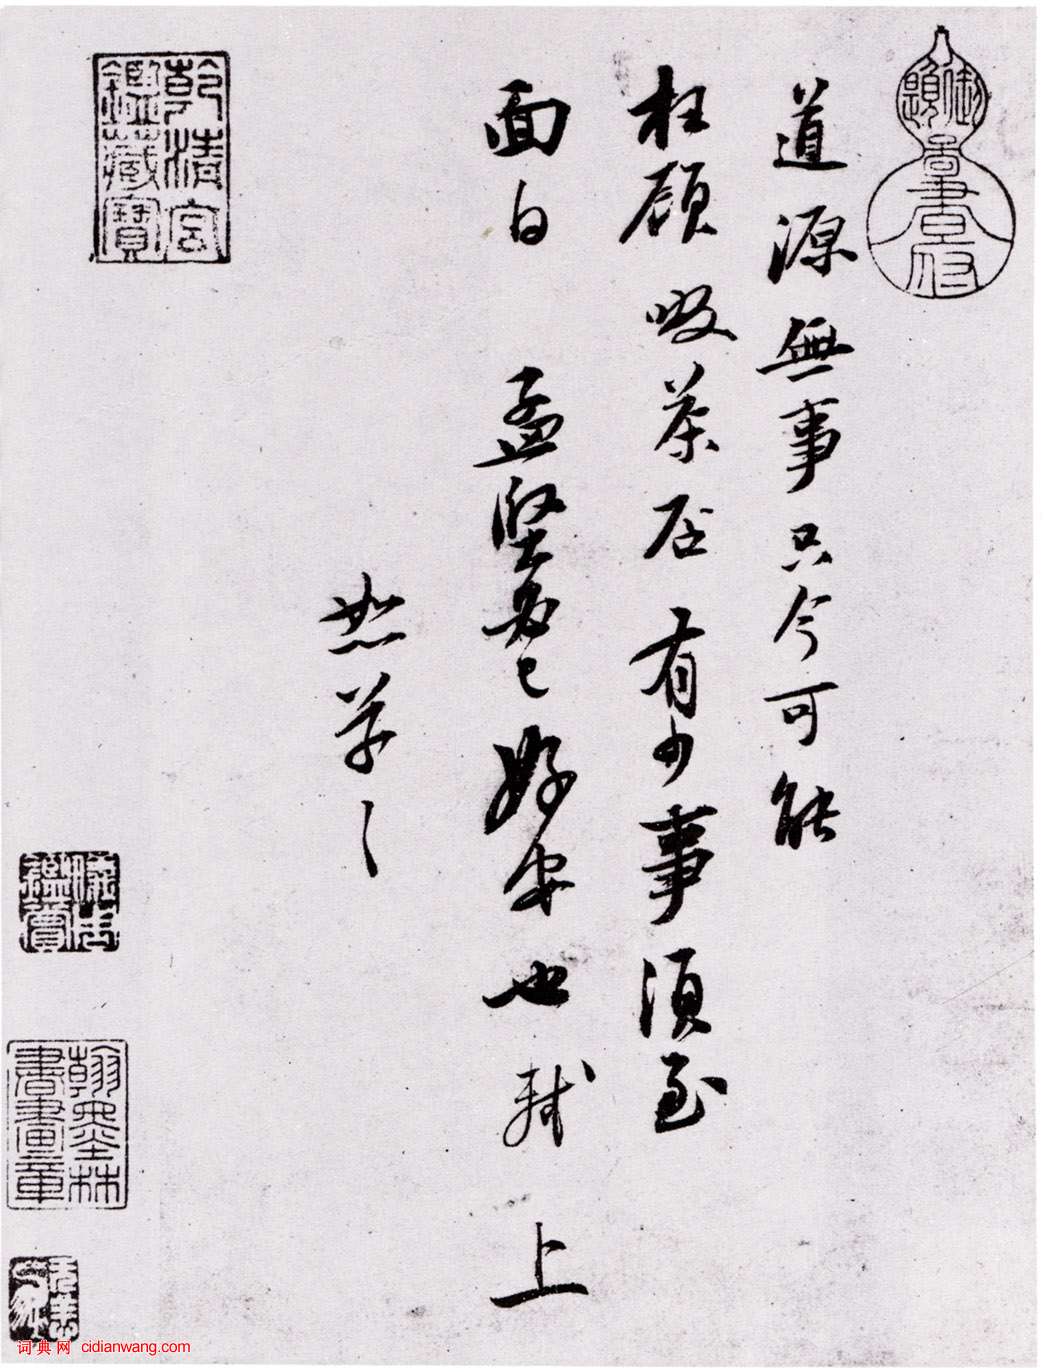 道源無事只今可能
枉顧啜茶否有少事須至
面白孟堅必已好安也軾上
恕草々
乾清宮
鑑藏寶
翰墨林
書畫章
词典网 cidianwang.com